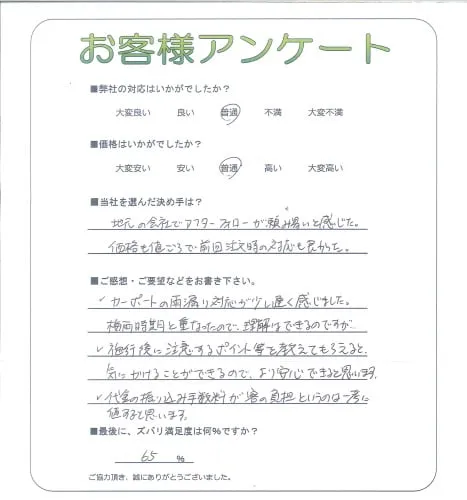 お客様アンケート
■弊社の対応はいかがでしたか？
大変良い 良い 普通 不満 大変不満
■価格はいかがでしたか？
大変安い 安い 普通 高い 大変高い
■当社を選んだ決め手は？
地元の会社でアフターフォローが頼み易いと感じた。
価格も値ごろで前回注文時の対応も良かった。
■ご感想・ご要望などをお書き下さい。
✓カーポートの雨漏り対応が少し遅く感じました。
梅雨時期と重なったので、理解はできるのですが、
✓施行後に注意するポイント等を教えてもらえると、
気にかけることができるので、より安心できると思います。
✓代金の振り込み手数料が客の負担というのは一考に
値すると思います。
■最後に、ズバリ満足度は何%ですか？
65 %
ご協力頂き、誠にありがとうございました。